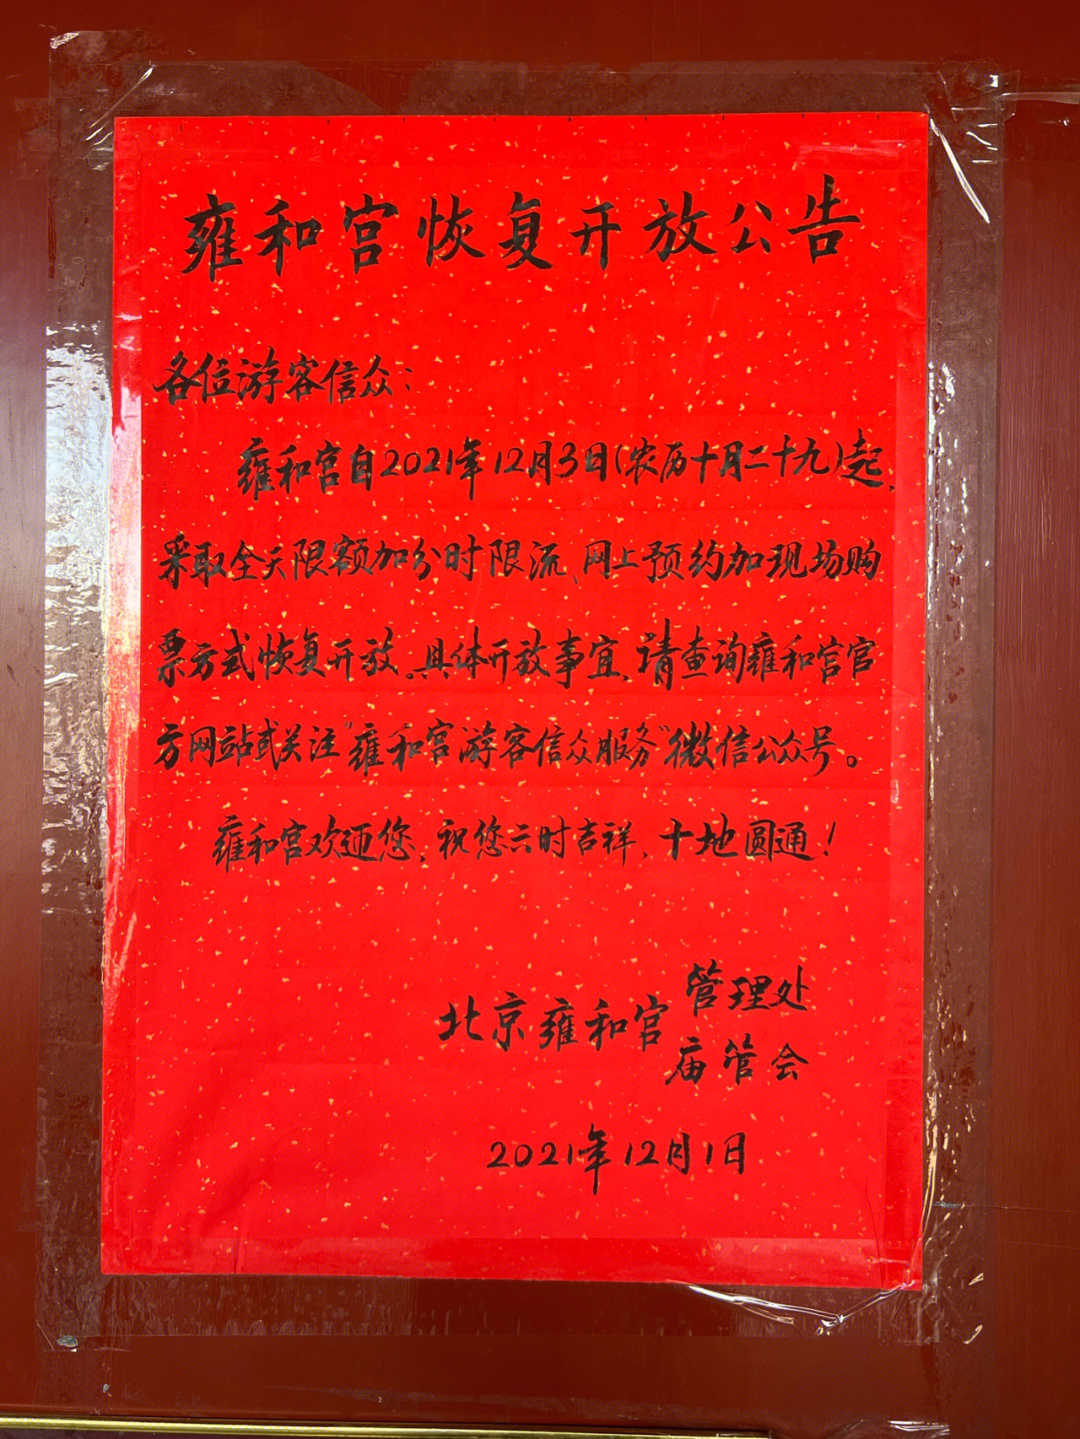 雍和宫恢复开放公告
各位游客信众：
雍和宫自2021年12月3日(农历十月二十九)起,
采取全天限额加分时限流、网上预约加现场购
票方式恢复开放。具体开放事宜,请查询雍和宫官
方网站或关注“雍和宫游客信众服务”微信公众号。
雍和宫欢迎您,祝您六时吉祥、十地圆通！
北京雍和宫管理处
庙管会
2021年12月1日